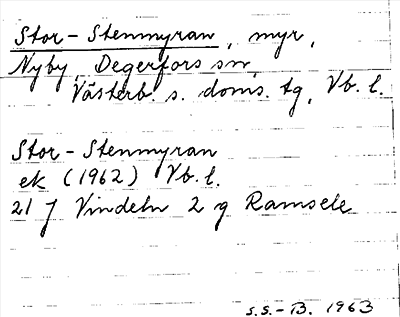 Stor-Stenmyran, myr,
Nyby, Degerfors sn,
Västerb. s. doms. tg, Vb. l.
Stor-Stenmyran
ek (1962) Vb. l.
21 J Vindeln 2 g Ramsele
S.S.-B. 1963